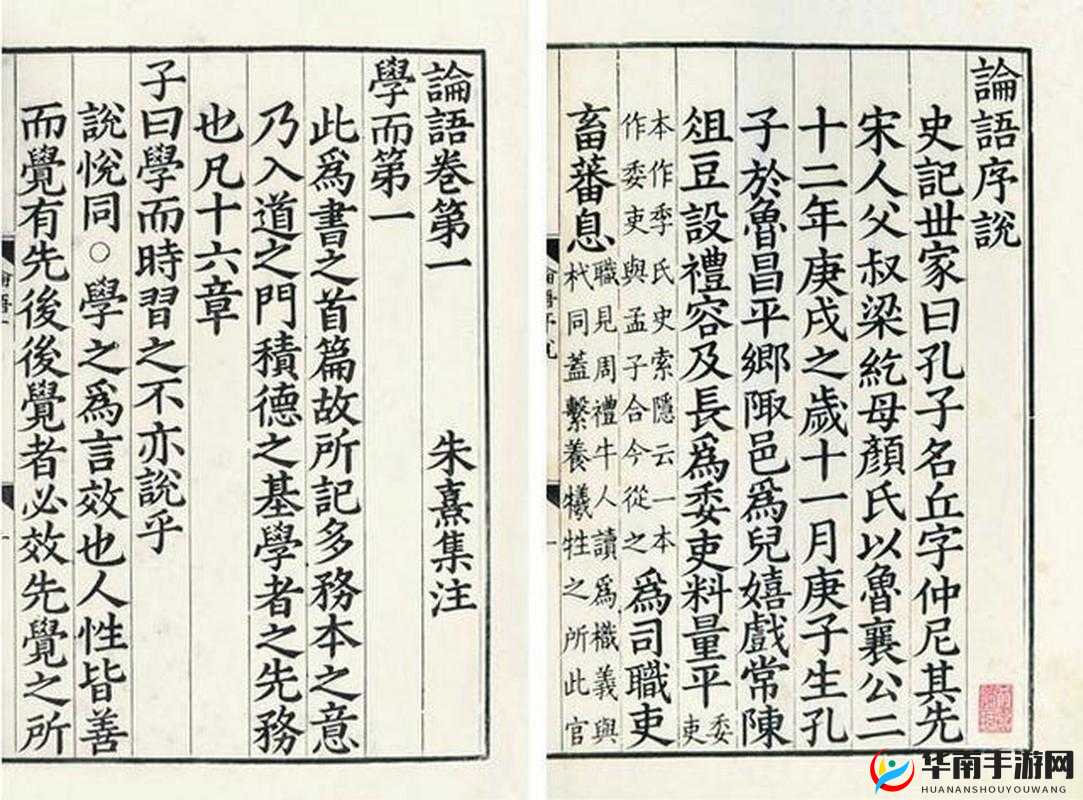 論語序說
史記世家曰孔子名丘字仲尼其先
宋人父叔梁紇母顏氏以魯襄公二
十二年庚戌之歲十一月庚子生孔
子於魯昌平鄉陬邑爲兒嬉戲常陳
俎豆設禮容及長爲委吏料量平委吏
本作季氏史索隱云一本
作委吏與孟子合今從之
爲司職吏
畜蕃息
職見周禮牛人讀爲樴義與
杙同蓋繫養犧牲之所此官
論語卷第一 朱熹集注
學而第一
此爲書之首篇故所記多務本之意
乃入道之門積德之基學者之先務
也凡十六章
子曰學而時習之不亦說乎
說悅同○學之爲言效也人性皆善
而覺有先後後覺者必效先覺之所
华南手游网
HUANANSHOUYOUWANG